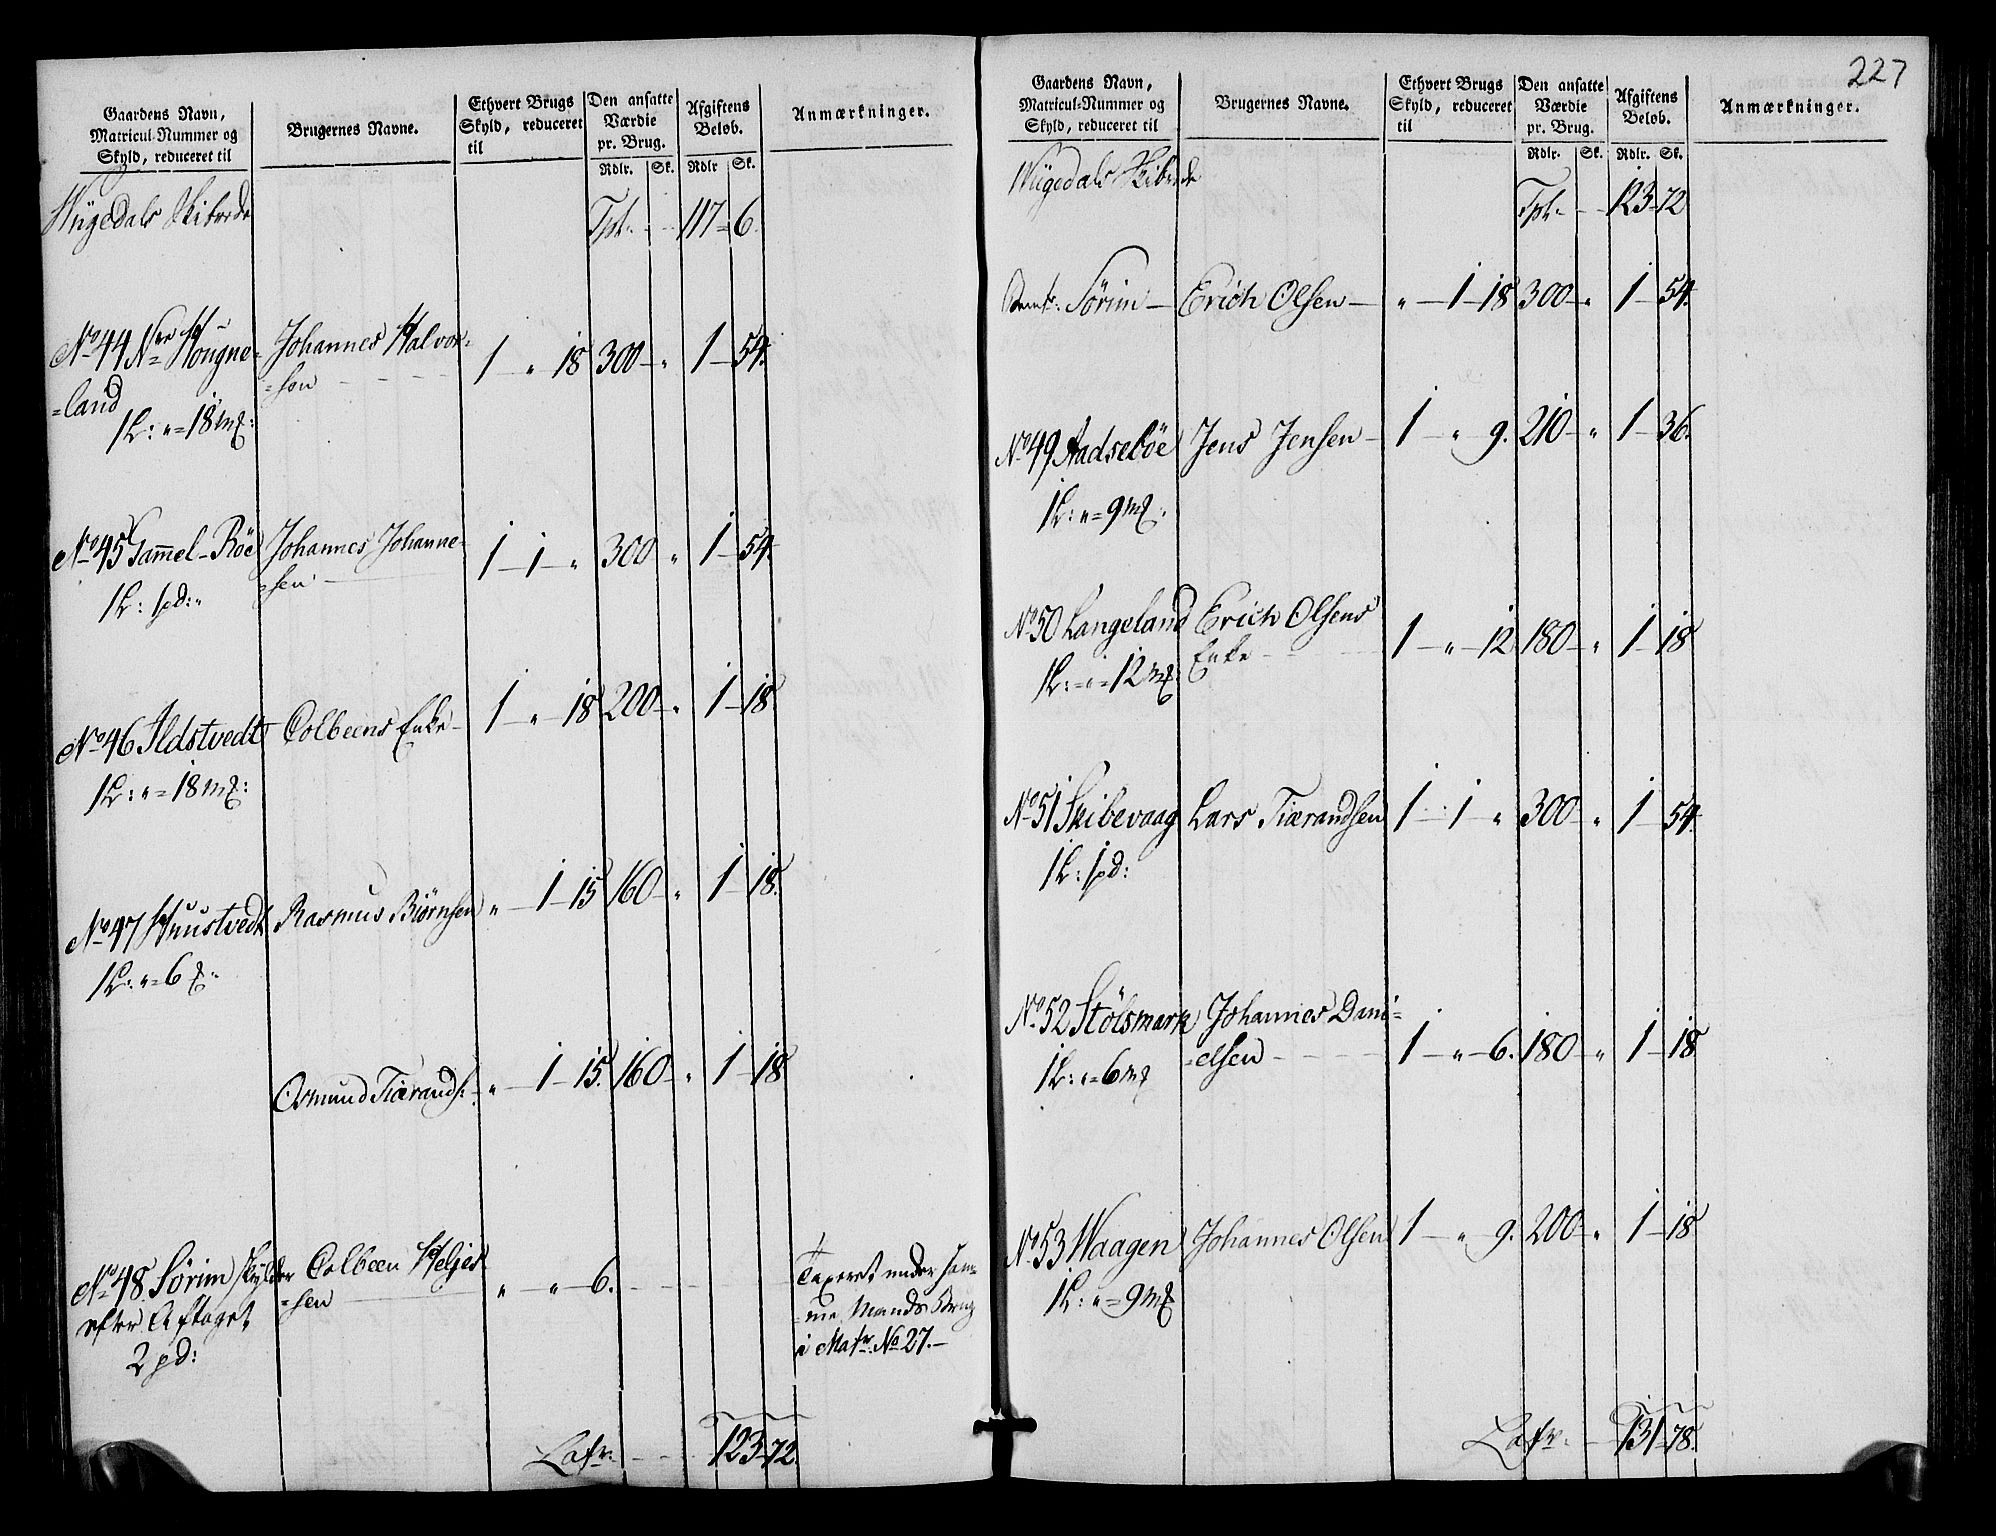 Gaardens Navn,
Matricul-Nummer og
Skyld, reduceret til
Brugernes Navne.
Ethvert Brugs
Skyld, reduceret
til
Den ansatte
Værdie
pr. Brug.
Rdlr. Sk.
Afgiftens
Beløb.
Rdlr Sk.
Anmærkninger.
Skibrede
Tpt. 117 = 6.
No 44 Nre Hougne=
=land
1 L: " = 18 mk:
Johannes Halvor=
=sen
1 — " 18 300 — " 1 — 54.
No 45 Gammel-Röe
1 L: 1 pd: "
Johannes Johanne=
=sen
1 — 1 — " 300 " 1 — 54.
No 46 Ildstvedt
1 L: " = 18 mk:
Colbeens Enke
1 — " — 18 200 — " 1 — 18
No 47 Huustvedt
1 L: " = 6
Rasmus Biörnsen
" — 1 — 15 160 — " 1 — 18.
Osmund Tiærands:
" — 1 — 15. 160 — " 1 — 18
No 48. Sörim skylder
efter Aftaget
2 pd:
Colbeen Heljes
=sen
" — " — 6.
Taxeret under sam=
=me Mands Brug
i Matr. No 27. —
Latr. 123 = 72.
227
Gaardens Navn,
Matricul-Nummer og
Skyld, reduceret til
Brugernes Navne.
Ethvert Brugs
Skyld, reduceret
til
Den ansatte
Værdie
pr. Brug.
Rdlr. Sk.
Afgiftens
Beløb.
Rdlr. Sk.
Anmærkninger.
Skibrede
Tpt. 123 = 72
Sörim — Erich Olsen — " — 1 — 18 300 — " 1 — 54.
No 49 Aadseböe
1 L: " = 9 mk:
Jens Jensen —
1 — " 9. 210 — " 1 — 36.
No 50 Langeland
1 L: = " = 12 mk:
Erich Olsens
Enke
1 — " — 12 180 — " 1 — 18
No 51 Skibevaag
1 L: 1 pd:
Lars Tiærandsen
1 — 1 " 300 — " 1 — 54.
No 52 Stölsmark
1 L: " = 6 mk
Johannes Dani=
=elsen
1 — " — 6. 180 — " 1 — 18
No 53 Waagen
1 L: " = 9 mk
Johannes Olsen
1 — " 9. 200 — " 1 — 18
Latr. 131 = 78.